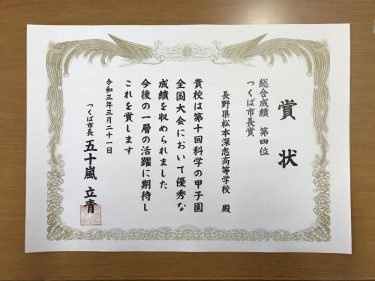 賞状
総合成績 第四位
つくば市長賞
長野県松本深志高等学校 殿
貴校は第十回科学の甲子園
全国大会において優秀な
成績を収められました
今後の一層の活躍に期待し
これを賞します
令和三年三月二十一日
つくば市長 五十嵐 立青